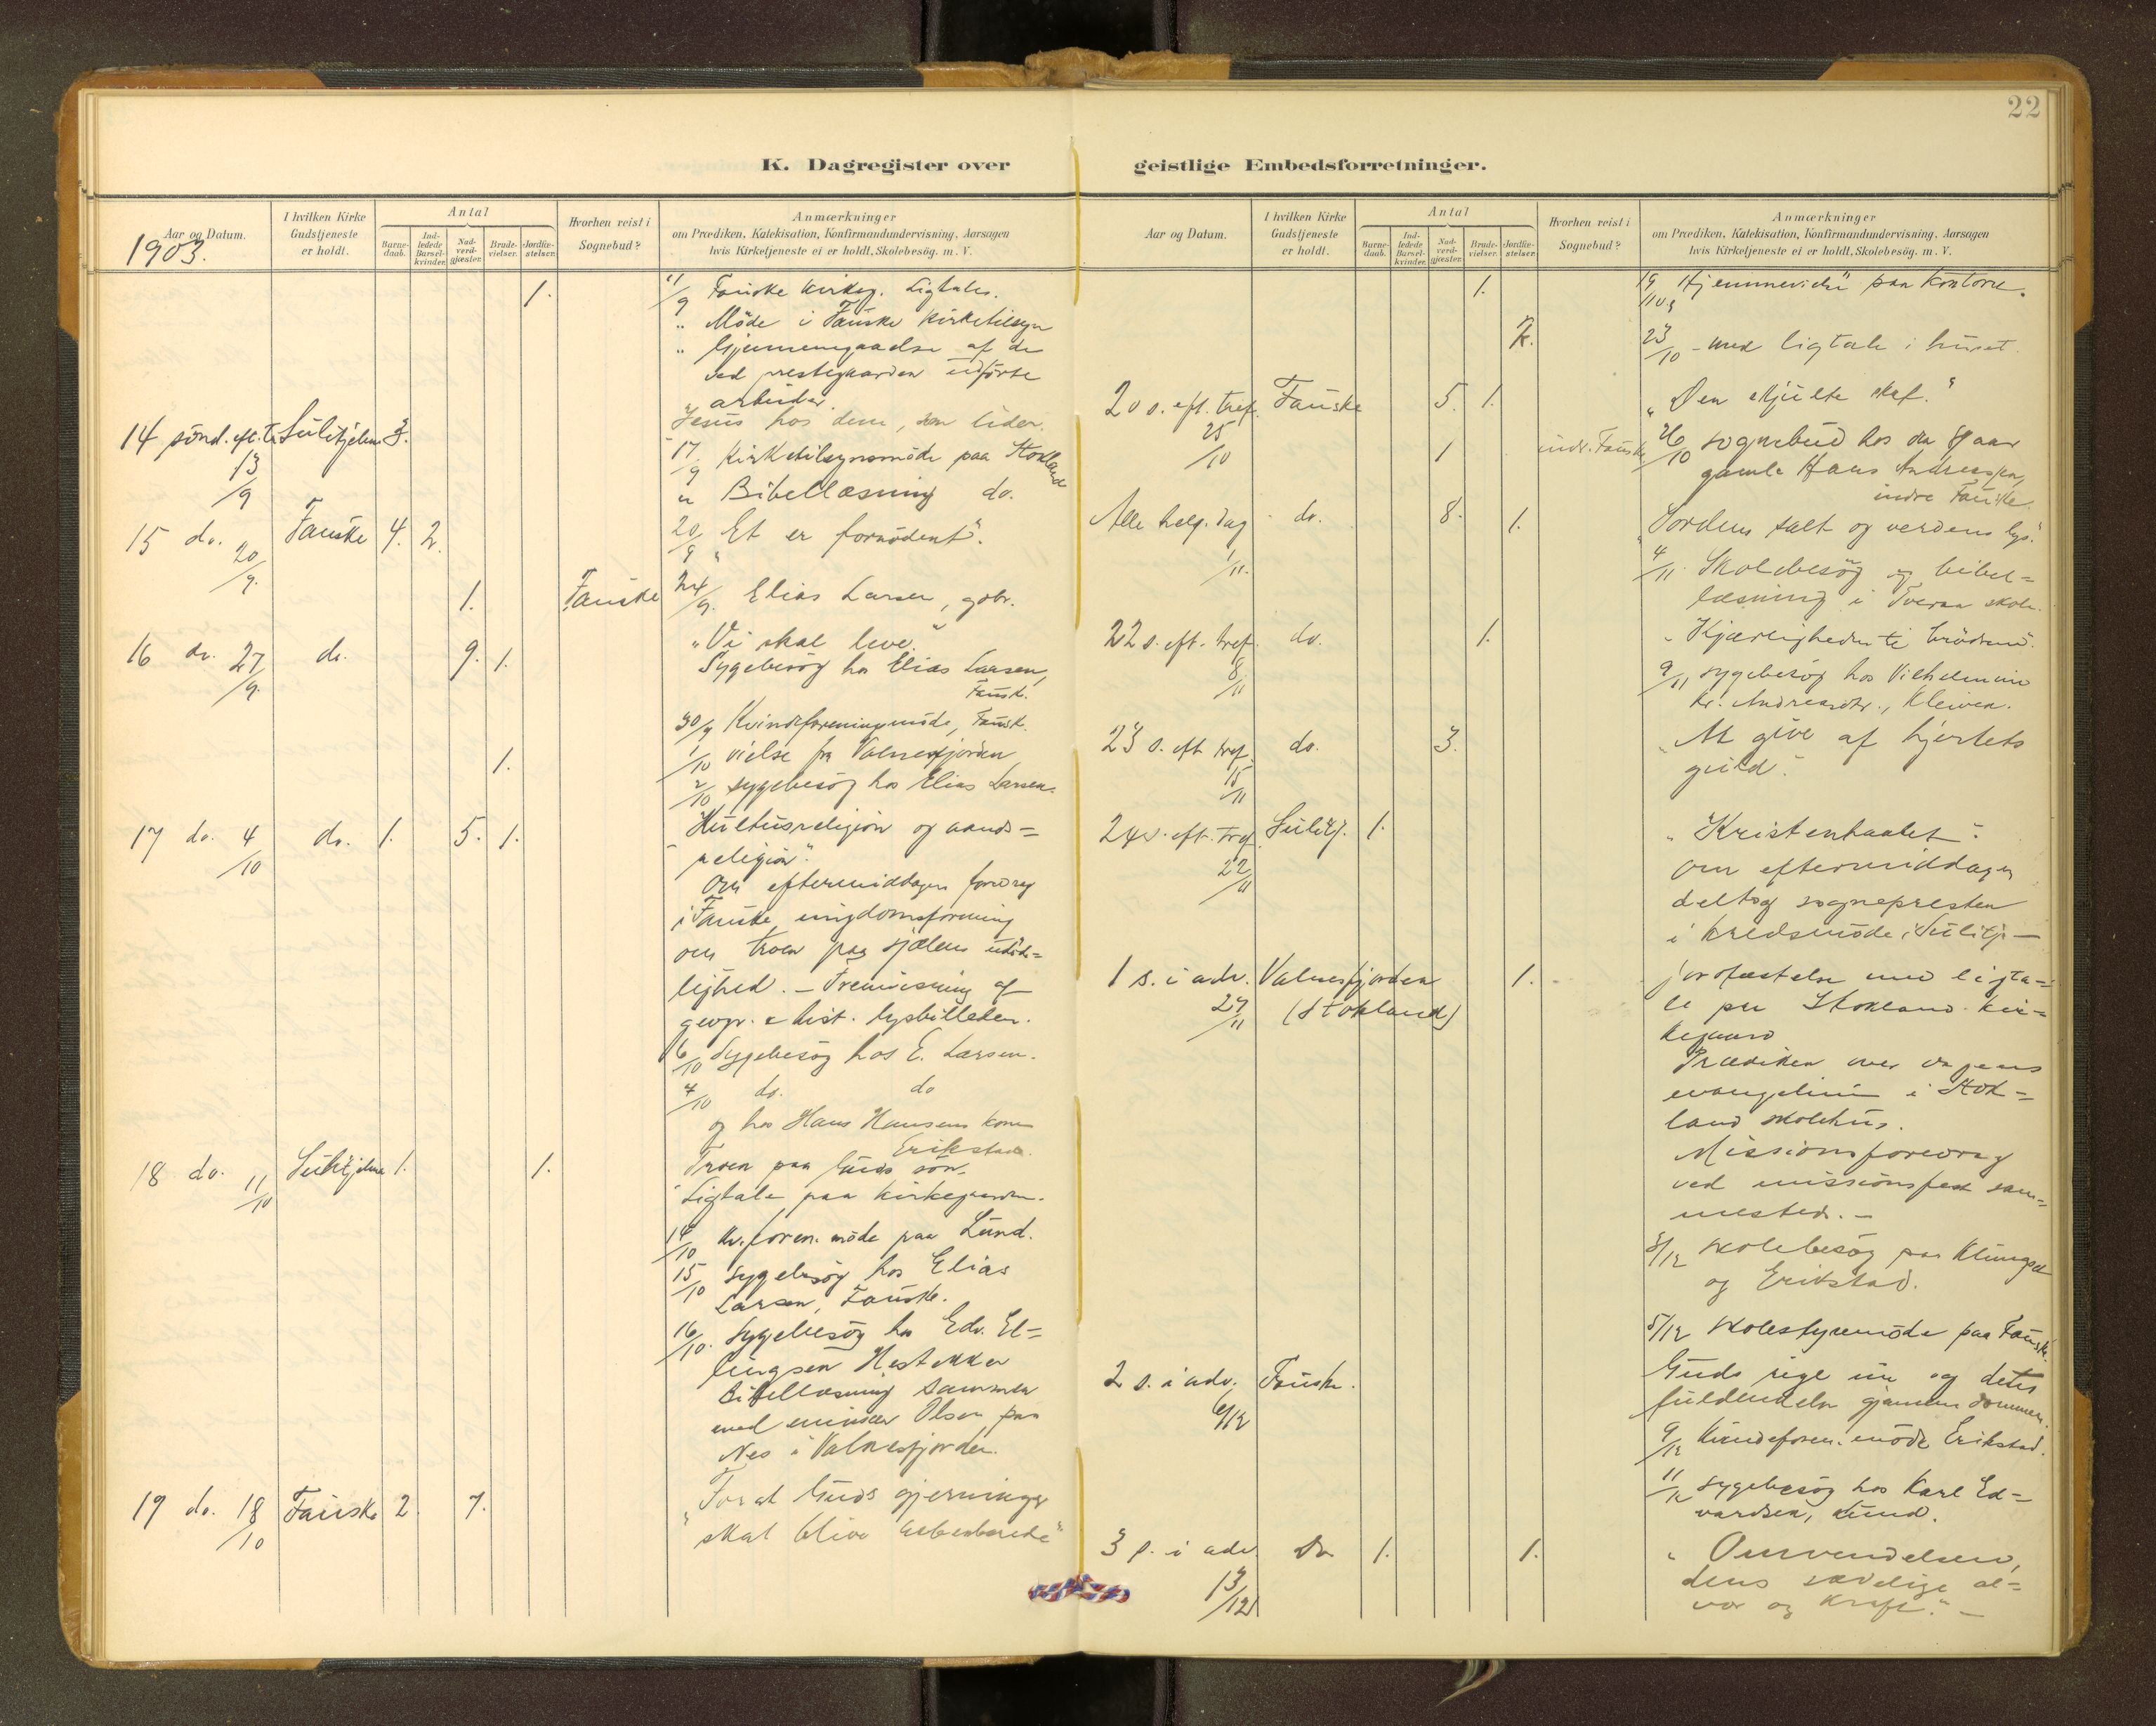 22
K. Dagregister over geistlige Embedsforretninger.
Aar og Datum.
I hvilken Kirke Gudstjeneste er holdt.
Antal
Barne-daab.
Ind-ledede Barsel-kvinder.
Nad-verd-gjæster.
Brude-vielser.
Jordfæ-stelser.
Hvorhen reist i Sognebud?
Anmærkninger
om Prædiken, Katekisation, Konfirmandundervisning, Aarsagen
hvis Kirketjeneste ei er holdt, Skolebesög. m. V.
1903.
1. 11/9 Fauske kirkeg. Ligtale.
" Möde i Fauske kirketilsyn
" Gjennemgaaelse af de
ved prestegaarden udförte
arbeider.
14 sönd. eft. Tr. 13/9 Sulitjelma 3. "Jesus hos dem, som lider.
17/9 Kirketilsynsmöde paa Stokland
" Bibellæsning do.
15 do. 20/9. Fauske 4. 2. 20/9 "Et er fornödent".
1. Fauske 24/9. Elias Larsen, gbr.
16 do. 27/9. do. 9. 1. "Vi skal leve."
Sygebesög hos Elias Larsen,
Fausk.
30/9 Kvindeforeningsmöde, Fausk.
1. 1/10 vielse fra Valnesfjorden
2/10 sygebesög hos Elias Larsen.
17 do. 4/10 do. 1. 5. 1. "Kultusreligion og aands=
religion".
Om eftermiddagen foredrag
i Fauske ungdomsforening
om troen paa sjælens udöde=
lighed. - Fremvisning af
geogr. & hist. lysbilleder.
6/10 Sygebesög hos E. Larsen.
7/10 do. do
og hos Hans Hansens kone
Erikstad.
18 do. 11/10 Sulitjelma 1. 1. Troen paa Guds sön.
Ligtale paa kirkegaarden.
14/10 Kv.foren. möde paa Lund.
15/10 sygebesög hos Elias
Larsen, Fauske.
16/10. Sygebesög hos Edv. El=
lingsen Hestekker
Bibellæsning sammen
med emissær Olsen paa
Nes i Valnesfjorden.
19 do. 18/10 Fauske 2. 7. "For at Guds gjerninger
skal blive aabenbarede"
Aar og Datum.
I hvilken Kirke Gudstjeneste er holdt.
Antal
Barne-daab.
Ind-ledede Barsel-kvinder.
Nad-verd-gjæster.
Brude-vielser.
Jordfæ-stelser.
Hvorhen reist i Sognebud?
Anmærkninger
om Prædiken, Katekisation, Konfirmandundervisning, Aarsagen
hvis Kirketjeneste ei er holdt, Skolebesög. m. V.
1. 19/10 "Hjemmevielse" paa kontoret.
23/10 - med ligtale i huset.
20 s. eft. tref. 25/10 Fauske 5. 1. "Den skjulte skat."
1 indr. Fauske 26/10 sognebud hos den aar
gamle Hans Andreassen,
indre Fauske.
Alle helg. dag 1/11. do. 8. 1. "Jordens salt og verdens lys."
4/11. Skolebesög og bibel=
læsning i Tveraa skole.
22 s. eft. tref. 8/11 do. 1. "Kjærligheden til brödrene".
9/11 sygebesög hos Vilhelmine
Kr. Andreasdtr., Kleiven.
23 s. eft. tref. 15/11 do. 3. "At give af hjertets
guld".
24 s. eft. tref. 22/11 Sulitj. 1. "Kristenkaldet".
Om eftermiddagen
deltog sognepresten
i kredsmöde i Sulitj -
1 s. i adv. 27/11 Valnesfjorden (Stokland) 1. jordfæstelse med ligta=
le paa Stokland kir=
kegaard
Prædiken over dagens
evangelium i Stok=
land skolehus.
Missionsforedrag
ved missionsfest sam=
mesteds. -
3/12 skolebesög paa Klungset
og Erikstad.
5/12 skolestyremöde paa Fausk.
2 s. i adv. 6/12 Fauske. Guds rige nu og dets
fuldendelse gjennem dommen.
9/12 Kvindeforen. möde Erikstad.
11/12 sygebesög hos Karl Ed=
vardsen, Lund.
3 s. i adv. 13/12 Do 1. 1. "Omvendelsen,
dens sædelige al=
vor og kraft." -